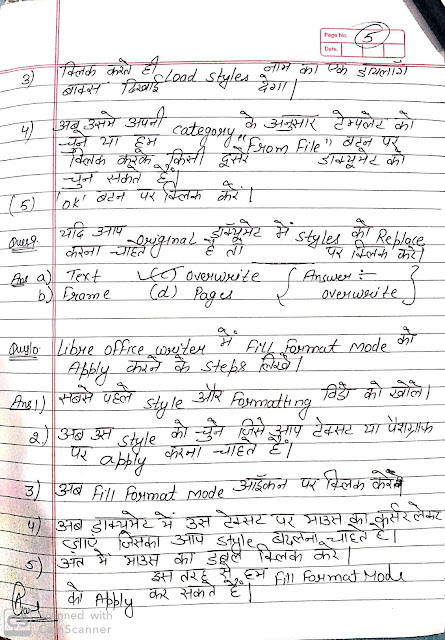 Page No. 5
Date
3) क्लिक करते ही Load Styles नाम का एक डायलॉग
बाक्स दिखाई देगा।
4) अब उसमे अपनी category के अनुसार टेम्पलेट को
चुने या हम "From File" बटन पर
क्लिक करके किसी दूसरे डाक्यूमेंट को
चुन सकते है।
(5) 'OK' बटन पर क्लिक करें।
Ques9. यदि आप original डॉक्यूमेंट में styles को Replace
करना चाहते है तो पर क्लिक करे।
Ans a) Text overwrite { Answer :-
b) Frame (d) Pages overwrite }
Ques10 Libre office writer में Fill Format Mode को
Apply करने के steps लिखें।
Ans 1) सबसे पहले Style और Formatting विंडो को खोले।
2) अब उस style को चुने जिसे आप टेक्सट या पैराग्राफ
पर apply करना चाहते हैं।
3) अब Fill Format Mode आइकन पर क्लिक करे
4) अब डाक्यूमेंट में उस टेक्सट पर माउस का कर्सर लेकर
जाएं जिसका आप style बदलना चाहते है।
5) अंत में माउस का डबल क्लिक करे।
इस तरह से हम Fill Format Mode
को Apply कर सकते हैं।
CS Scanned with
CamScanner